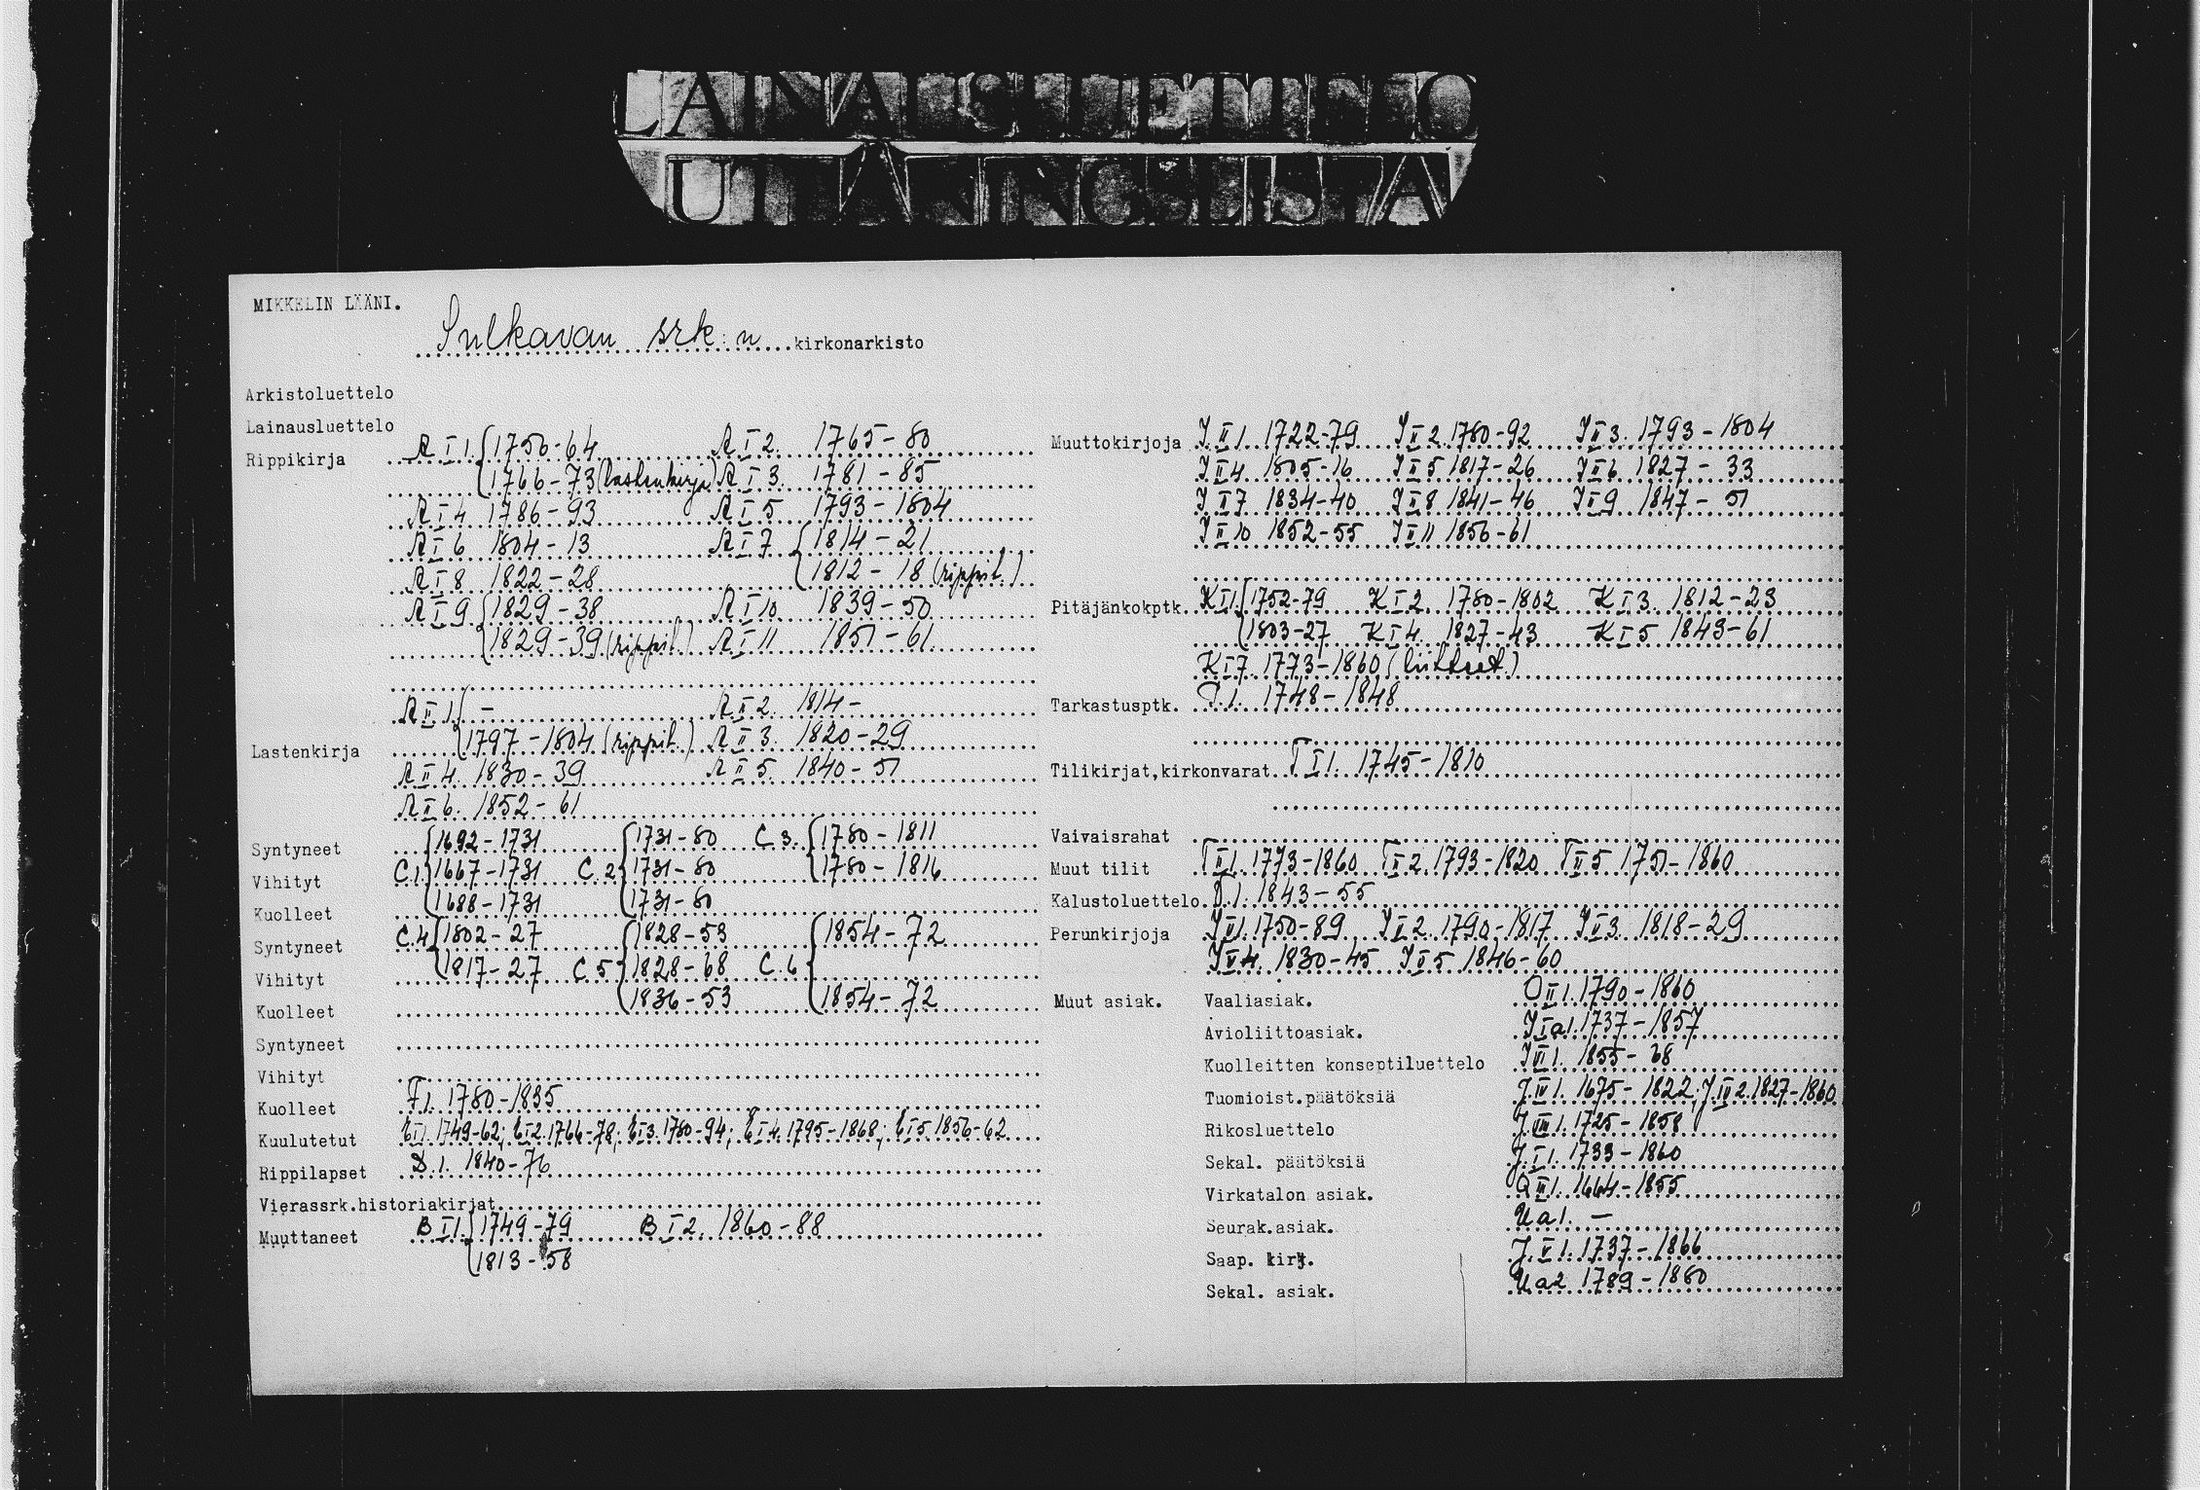 LAINAUSLUETTELO
UTLÅNINGSLISTA
MIKKELIN LÄÄNI.
Sulkavan srk:n kirkonarkisto
Arkistoluettelo
Lainausluettelo
Rippikirja A I 1. 1750-64 A I 2. 1765-80
1766-73 (lastenkirja) A I 3. 1781-85
A I 4 1786-93 A I 5 1793-1804
A I 6 1804-13 A I 7 1814-21
A I 8 1822-28 1812-18 (rippil.)
A I 9 1829-38 A I 10 1839-50
1829-39 (rippil.) A I 11 1851-61
A II 1. - A II 2. 1814-
Lastenkirja 1797-1804 (rippil.) A II 3. 1820-29
A II 4. 1830-39 A II 5. 1840-51
A II 6. 1852-61
Syntyneet 1692-1731 1731-80 C.3. 1780-1811
Vihityt C.1. 1667-1731 C.2 1731-80 1780-1816
Kuolleet 1688-1731 1731-80
Syntyneet C.4 1802-27 1828-53 1854-72
Vihityt 1817-27 C 5 1828-68 C.6
Kuolleet 1836-53 1854-72
Syntyneet
Vihityt
Kuolleet F1. 1780-1835
Kuulutetut E I 1. 1749-62; E I 2. 1766-78; E I 3. 1780-94; E I 4. 1795-1868; E I 5 1856-62
Rippilapset D.1. 1840-76
Vierassrk.historiakirjat
Muuttaneet B I 1. 1749-79 B I 2. 1860-88
1813-58
Muuttokirjoja J II 1. 1722-79 J II 2. 1780-92 J II 3. 1793-1804
J II 4 1805-16 J II 5 1817-26 J II 6 1827-33
J II 7 1834-40 J II 8 1841-46 J II 9 1847-51
J II 10 1852-55 J II 11 1856-61
Pitäjänkokptk. K I 1. 1752-79 K I 2. 1780-1802 K I 3. 1812-23
1803-27 K I 4. 1827-43 K I 5 1843-61
K I 7. 1773-1860 (liitteet.)
Tarkastusptk. P.1. 1748-1848
Tilikirjat,kirkonvarat T I 1. 1745-1810
Vaivaisrahat
Muut tilit T II 1. 1773-1860 T II 2. 1793-1820 T II 5 1751-1860
Kalustoluettelo 1. 1843-55
Perunkirjoja J V 1. 1750-89 J V 2. 1790-1817 J V 3. 1818-29
J V 4. 1830-45 J V 5 1846-60
Muut asiak. Vaaliasiak. O II 1. 1790-1860
Avioliittoasiak. 1737-1857
Kuolleitten konseptiluettelo 1855-68
Tuomioist.päätöksiä J. IV 1. 1675-1822, J. IV 2. 1827-1860
Rikosluettelo J. III 1. 1725-1858
Sekal. päätöksiä 1733-1860
Virkatalon asiak. 1664-1855
Seurak.asiak. U a 1. -
Saap. kirj. 1737-1866
Sekal. asiak. U a 2 1789-1860